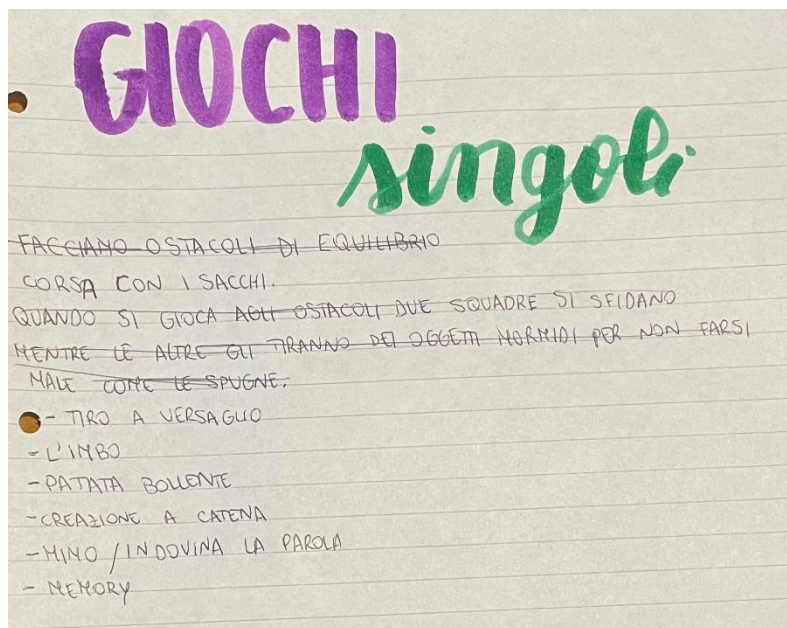 GIOCHI
singoli
FACCIANO OSTACOLI DI EQUILIBRIO
CORSA CON I SACCHI.
QUANDO SI GIOCA AGLI OSTACOLI DUE SQUADRE SI SFIDANO
MENTRE LE ALTRE GLI TIRANNO DEI OGGETTI MORMIDI PER NON FARSI
MALE COME LE SPUGNE.
- TIRO A VERSAGLIO
- L'IMBO
- PATATA BOLLENTE
- CREAZIONE A CATENA
- MIMO / INDOVINA LA PAROLA
- MEMORY